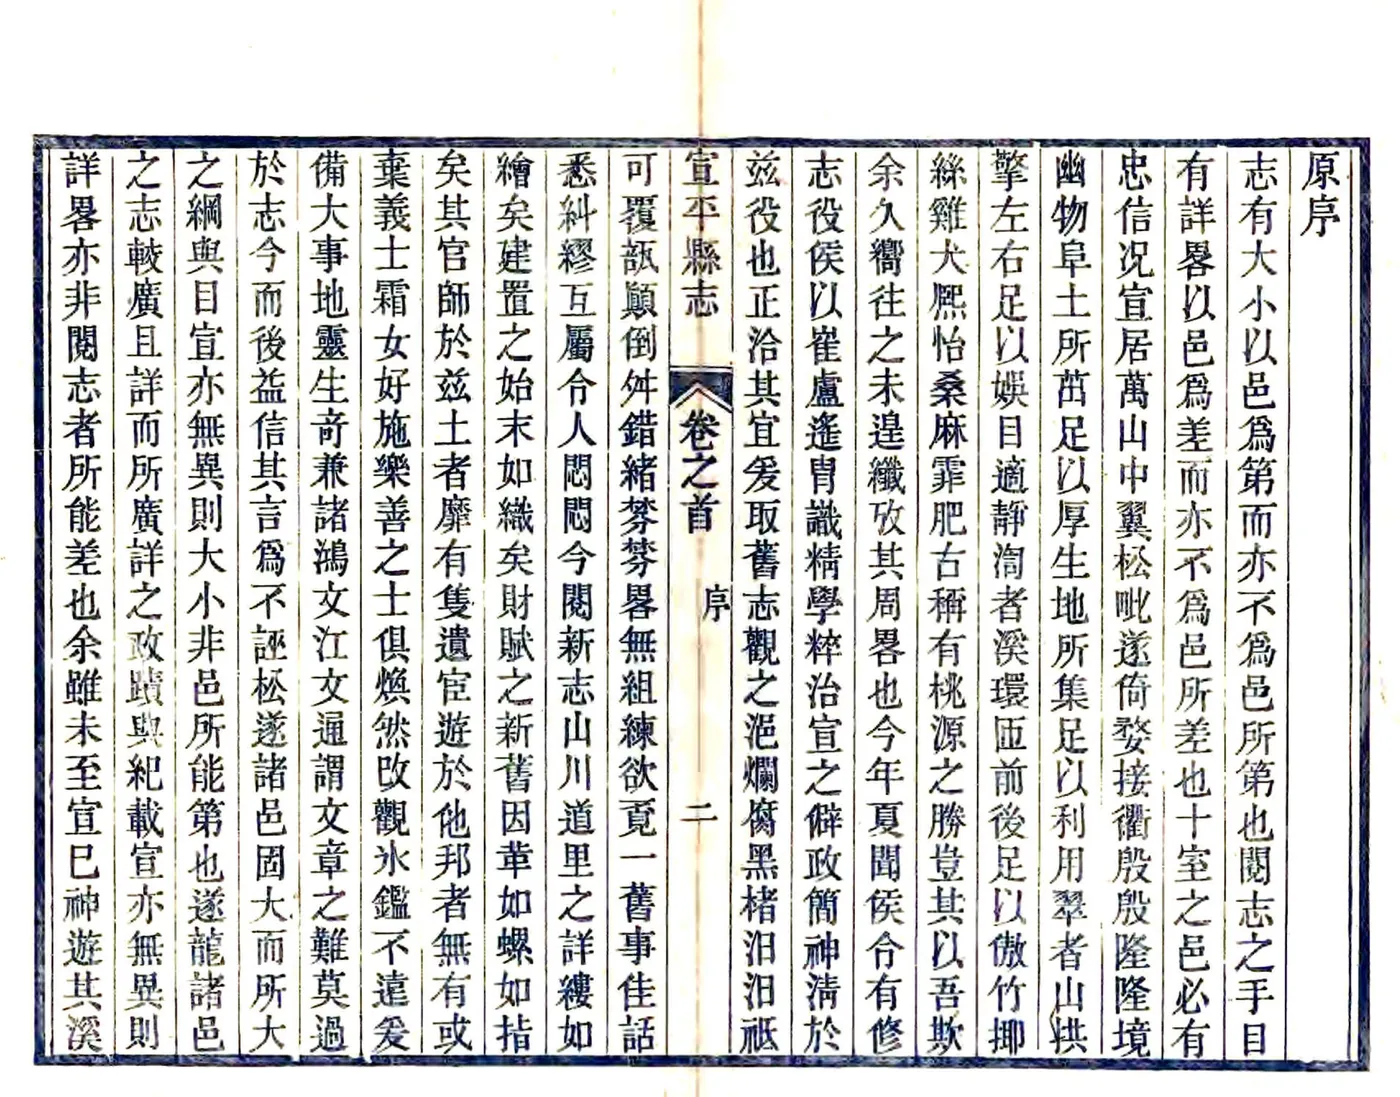 原序
志有大小以邑爲第而亦不爲邑所第也閱志之手目
有詳畧以邑爲差而亦不爲邑所差也十室之邑必有
忠信况宣居萬山中翼松毗遂倚婺接衢殷殷隆隆境
幽物阜土所茁足以厚生地所集足以利用翠者山拱
擎左右足以娛目適靜淘者溪環匝前後足以傲竹揶
絲雞犬熈怡桑麻霏肥古稱有桃源之勝豈其以吾欺
余久嚮往之未遑纖攷其周畧也今年夏聞侯令有修
志役侯以崔盧遙胄識精學粹治宣之僻政簡神淸於
兹役也正洽其宜爰取舊志觀之浥爛腐黑楮汨汨祗
宣平縣志
卷之首
序
二
可覆瓿顚倒舛錯緒棼棼畧無組練欲覓一舊事佳話
悉糾繆互屬令人悶悶今閱新志山川道里之詳縷如
繪矣建置之始末如織矣財賦之新舊因革如螺如指
矣其官師於兹土者靡有隻遺宦遊於他邦者無有或
棄義士霜女好施樂善之士俱煥然改觀氷鑑不遠爰
備大事地靈生竒兼諸鴻文江文通謂文章之難莫過
於志今而後益信其言爲不誣松遂諸邑固大而所大
之綱與目宣亦無異則大小非邑所能第也遂龍諸邑
之志較廣且詳而所廣詳之政蹟與紀載宣亦無異則
詳畧亦非閱志者所能差也余雖未至宣巳神遊其溪